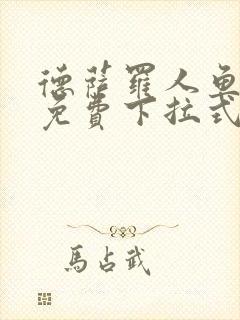 德薩羅人魚
免費下拉式
馬占武